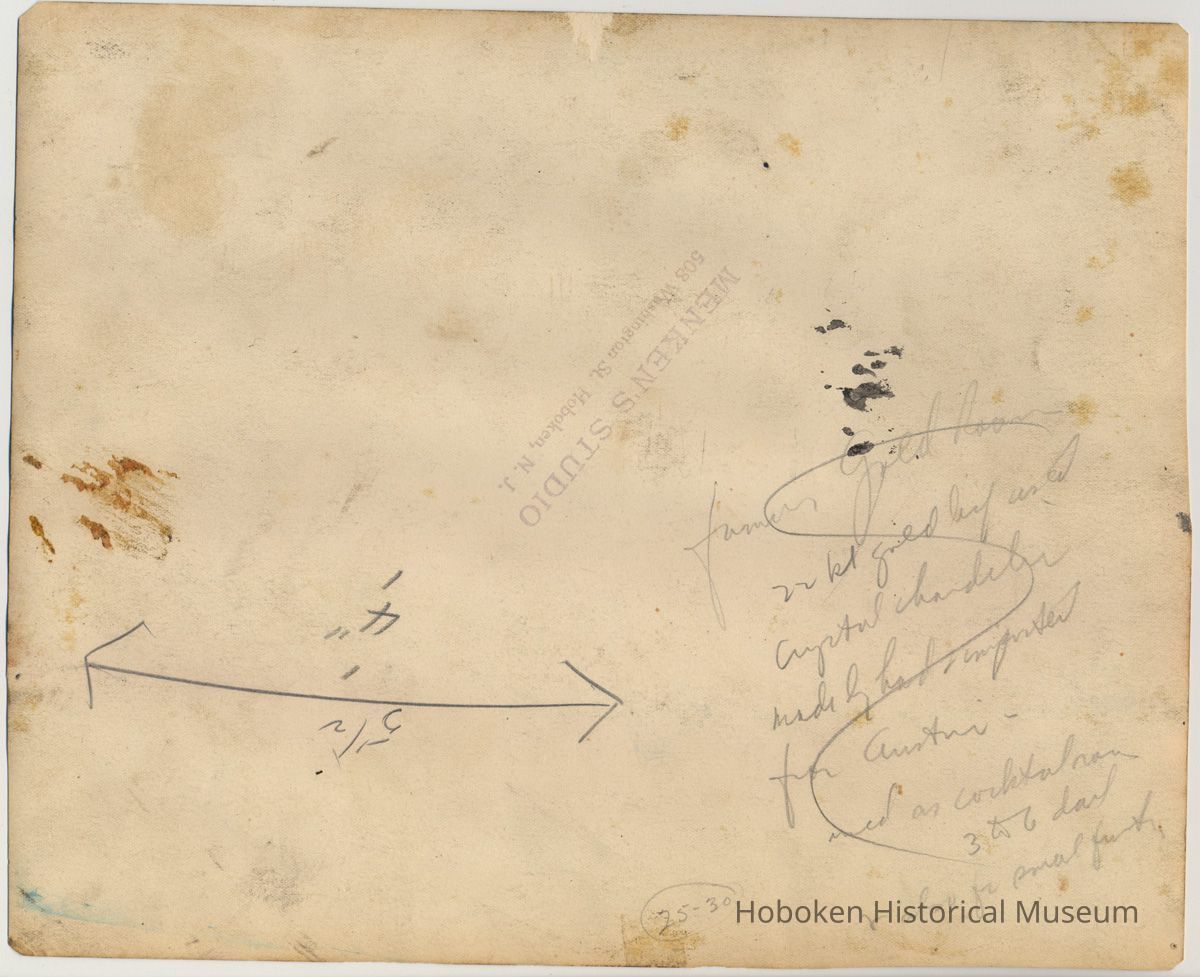 MENKEN'S STUDIO
508 Washington St. Hoboken, N. J.
famous Gold Room
22 kt gold leaf used
Crystal chandelier
made by hand imported
from Austria -
used as cocktail room
3 to 6 daily
for small
4"
5 1/2
25-30
Hoboken Historical Museum